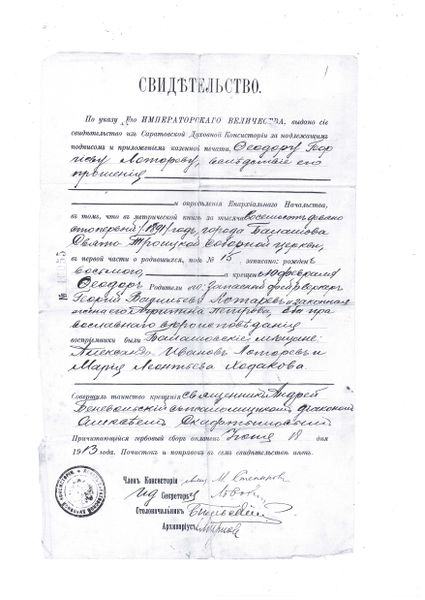 СВИДѢТЕЛЬСТВО.
По указу Его ИМПЕРАТОРСКАГО ВЕЛИЧЕСТВА, выдано сіе
свидѣтельство изъ Саратовской Духовной Консисторіи за надлежащимъ
подписомъ и приложеніемъ казенной печати, Ѳеодору Геор
гіеву Лотореву, вслѣдствіе его
прошенія
и опредѣленія Епархіальнаго Начальства,
въ томъ, что въ метрической книгѣ за тысяча восемьсотъ девяно
сто первый /1891/ годъ, города Балашова
Свято-Троицкой Соборной церкви,
въ первой части о родившихся, подъ № 15, записано: рожденъ
восьмого, а крещенъ 10 февраля
Ѳеодоръ Родители его: запасный
Георгій Лоторевъ и законная
жена его Петрова, оба пра
вославнаго вѣроисповѣданія
воспріемники были: Балашовскіе мѣщане:
Александръ Ивановъ Лоторевъ и
Марія Леонтьева Ходакова
Совершалъ таинство крещенія священникъ Андрей
съ псаломщикомъ діакономъ
Алексѣемъ
Причитающійся гербовый сборъ оплаченъ. Іюня 18 дня
1913 года. Почистокъ и поправокъ въ семъ свидѣтельствѣ нѣтъ.
Членъ Консисторіи М.
Секретарь
Столоначальникъ
Архиваріусъ